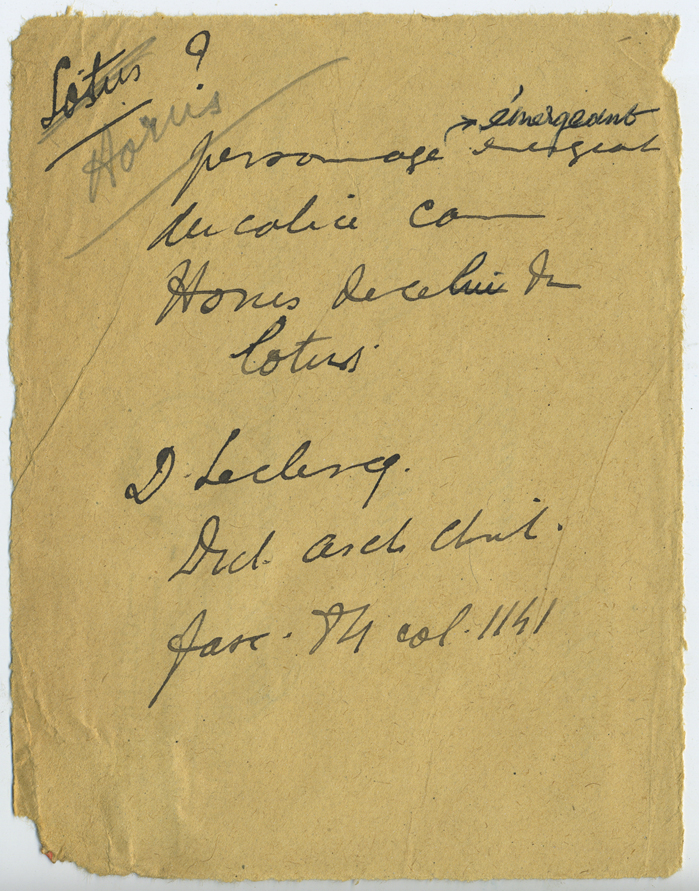 Lotus ?
Horus
émergeant
personnage émergeant
du calice com
Horus de celui du
lotus
D. Leclercq.
Dict. arch. chret.
fasc. 84 col. 1141